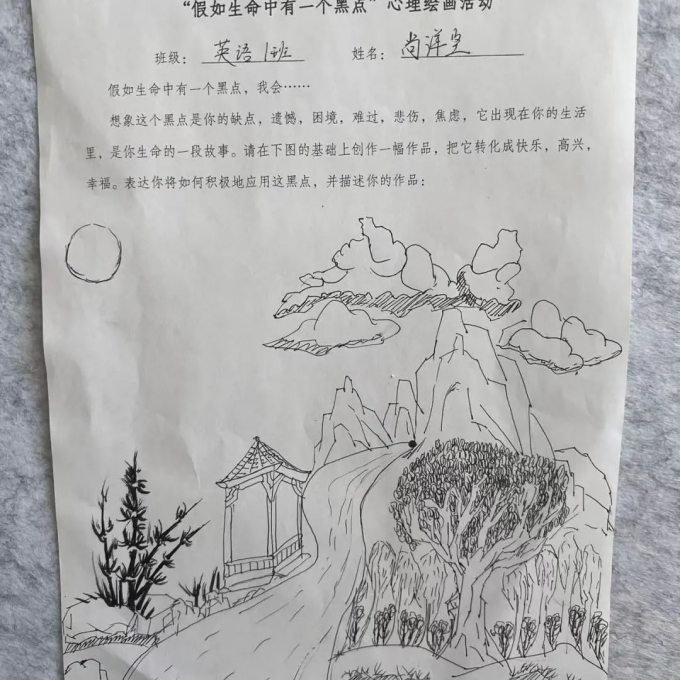 “假如生命中有一个黑点”心理绘画活动
班级：英语1班 姓名：尚洋宝
假如生命中有一个黑点，我会……
想象这个黑点是你的缺点，遗憾，困境，难过，悲伤，焦虑，它出现在你的生活
里，是你生命的一段故事。请在下图的基础上创作一幅作品，把它转化成快乐，高兴，
幸福。表达你将如何积极地应用这黑点，并描述你的作品：